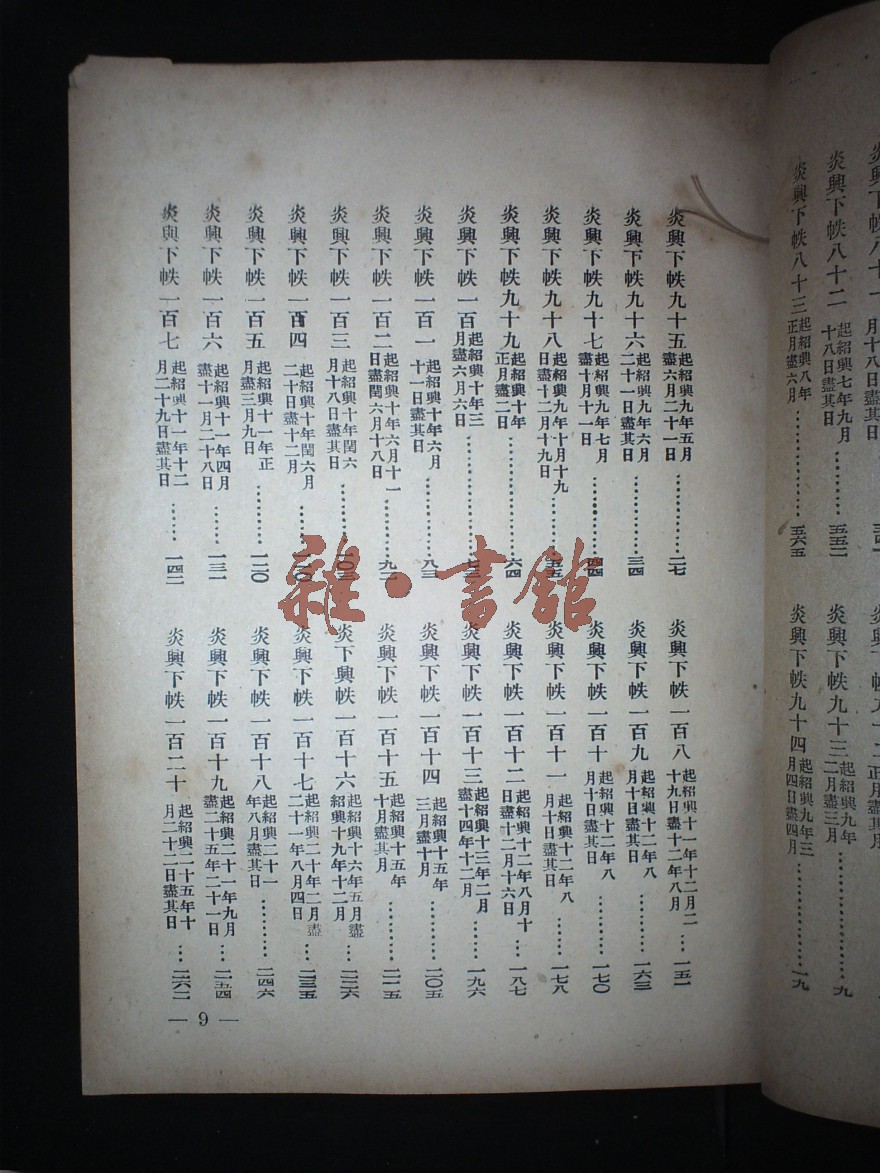 炎興下帙八十二 起紹興七年九月十八日盡其日 五五二
炎興下帙八十三 起紹興八年正月盡六月 五六五
炎興下帙九十三 起紹興九年二月盡三月 九
炎興下帙九十四 起紹興九年三月四日盡四月 一九
炎興下帙九十五 起紹興九年五月盡六月二十一日 二七
炎興下帙九十六 起紹興九年六月二十一日盡其日 三四
炎興下帙九十七 起紹興九年七月盡十月十一日 四四
炎興下帙九十八 起紹興九年十月十九日盡十二月十九日 五五
炎興下帙九十九 起紹興十年正月盡二日 六四
炎興下帙一百 起紹興十年三月盡六月六日 七三
炎興下帙一百一 起紹興十年六月十一日盡其日 八三
炎興下帙一百二 起紹興十年六月十一日盡閏六月十八日 九二
炎興下帙一百三 起紹興十年閏六月十八日盡其日 一〇三
炎興下帙一百四 起紹興十年閏六月二十日盡十二月
炎興下帙一百五 起紹興十一年正月盡三月九日 一二〇
炎興下帙一百六 起紹興十一年四月盡十一月二十八日 一三一
炎興下帙一百七 起紹興十一年十二月二十九日盡其日 一四二
炎興下帙一百八 起紹興十一年十二月二十九日盡十二年八月 一五一
炎興下帙一百九 起紹興十二年八月十日盡其日 一六三
炎興下帙一百十 起紹興十二年八月十日盡其日 一七〇
炎興下帙一百十一 起紹興十二年八月十日盡其日 一七八
炎興下帙一百十二 起紹興十二年八月十日盡十二月十六日 一八七
炎興下帙一百十三 起紹興十三年二月盡十四年十二月 一九六
炎興下帙一百十四 起紹興十五年三月盡十月 二〇五
炎興下帙一百十五 起紹興十五年十月盡其月 二一五
炎下興帙一百十六 起紹興十六年五月盡紹興十九年十二月 二二六
炎興下帙一百十七 起紹興二十年二月盡二十一年八月四日 二三五
炎興下帙一百十八 起紹興二十一年八月盡其日 二四六
炎興下帙一百十九 起紹興二十一年九月盡二十五年二十一日 二五四
炎興下帙一百二十 起紹興二十五年十月二十二日盡其日 二六二
— 9 —
雜·書館